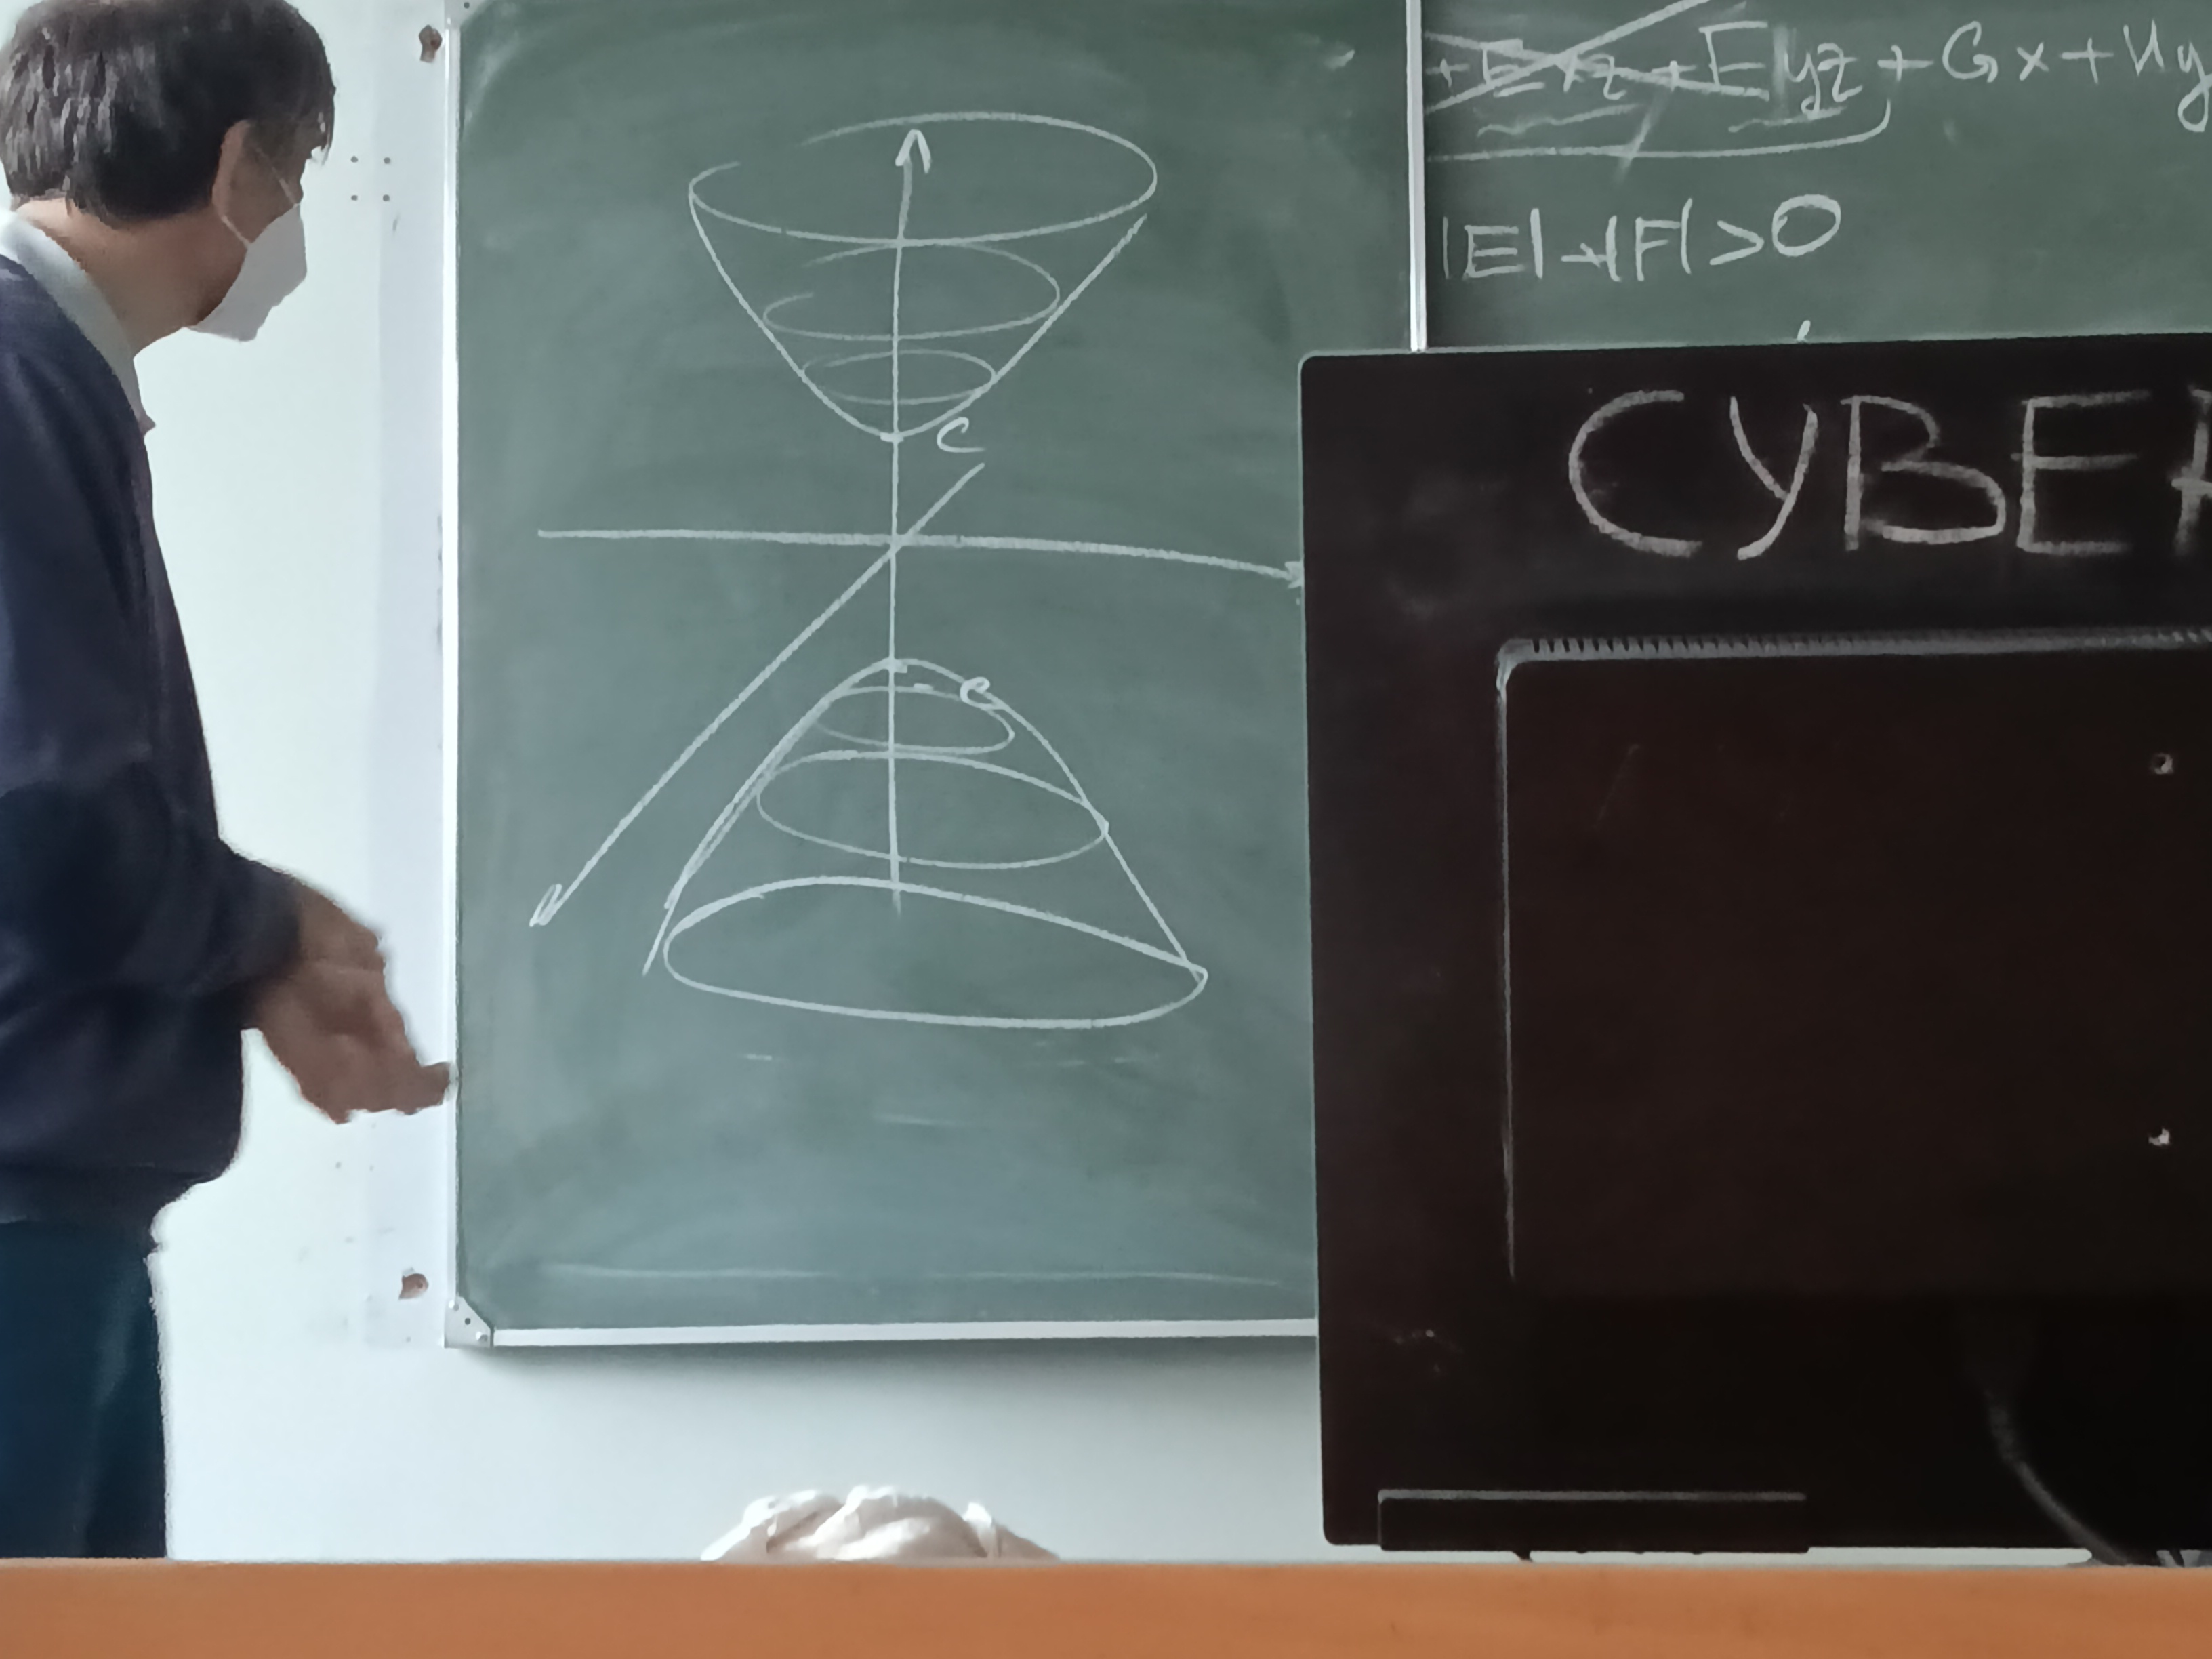 c
- c
+ Exz + Fyz + Gx + Hy
|E| + |F| > 0
CYBER